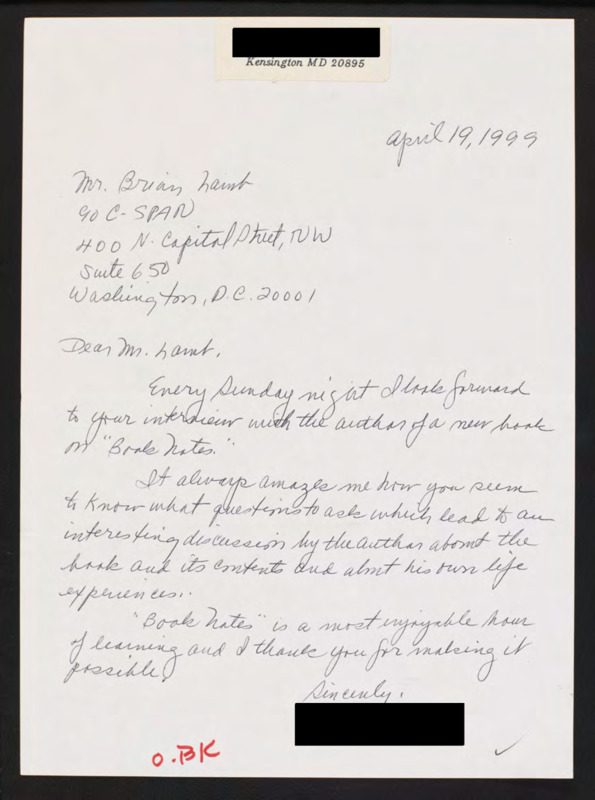 Kensington MD 20895
April 19, 1999
Mr. Brian Lamb
c/o C-SPAN
400 N. Capitol Street, NW
Suite 650
Washington, D.C. 20001
Dear Mr. Lamb,
Every Sunday night I look forward
to your interview with the author of a new book
on "Book Notes."
It always amazes me how you seem
to know what questions to ask which lead to an
interesting discussion by the author about the
book and its contents and about his own life
experiences.
"Book Notes" is a most enjoyable hour
of learning and I thank you for making it
possible.
Sincerely,
O.BK